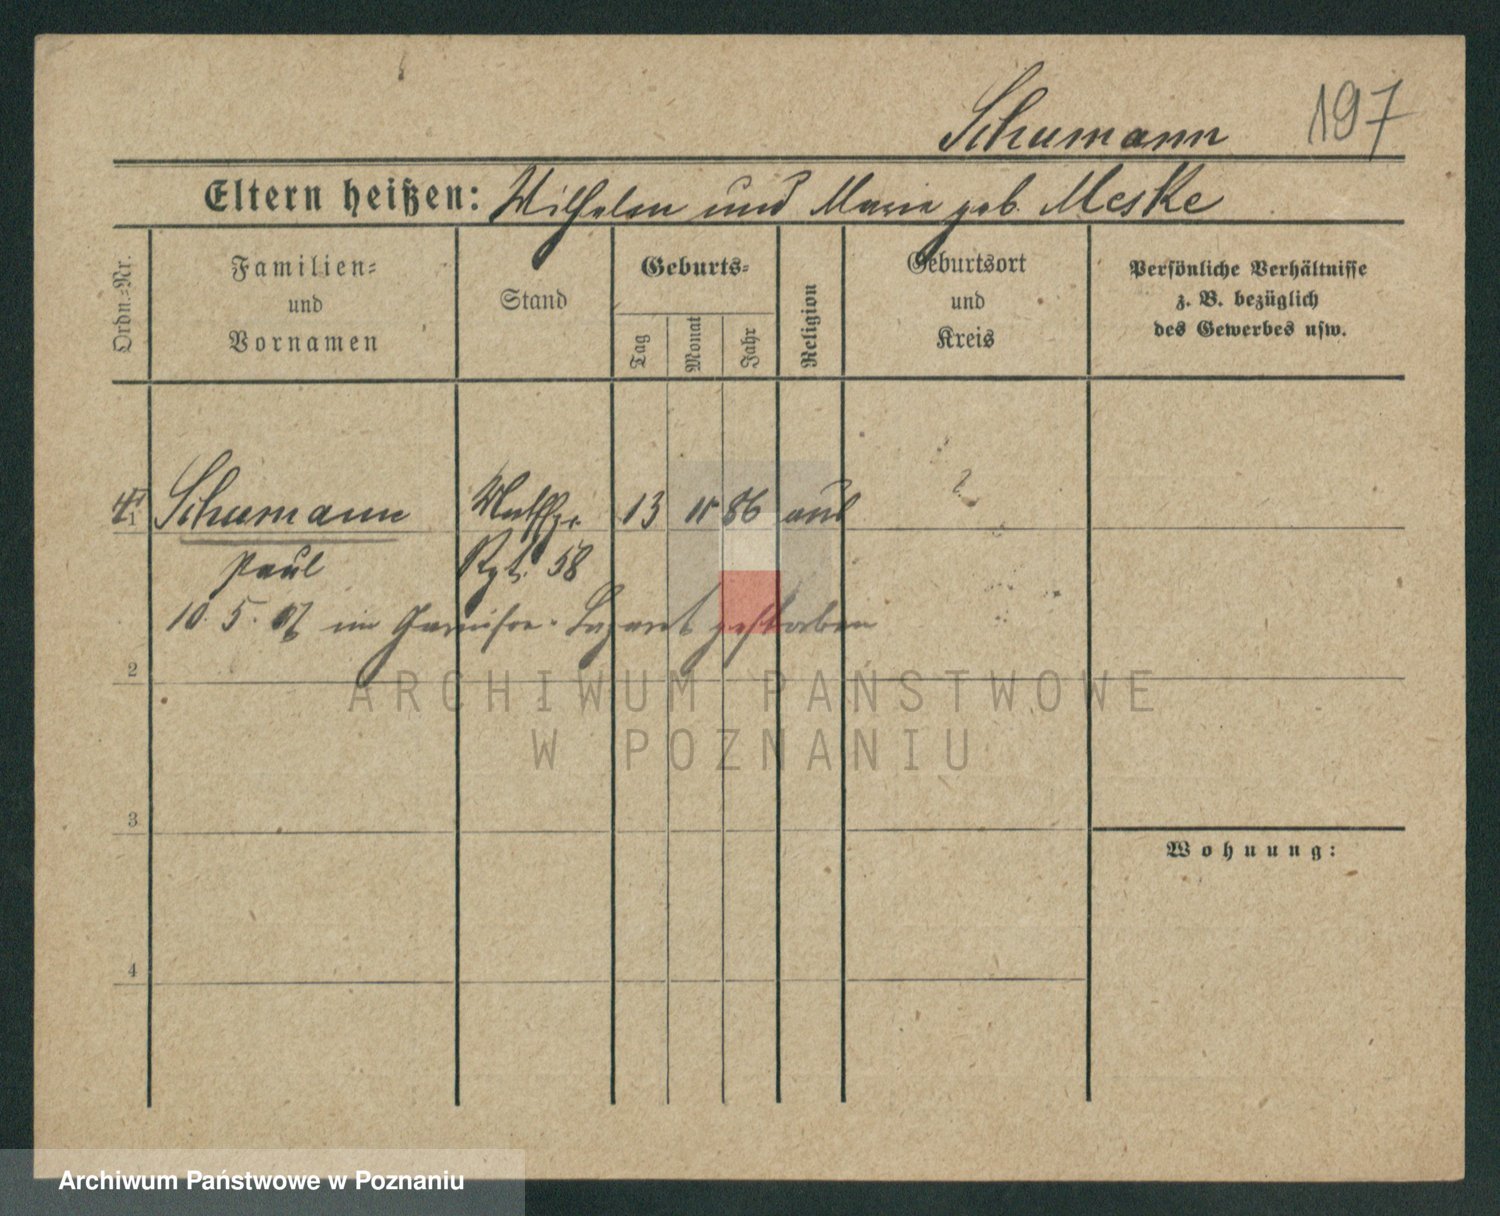 Schumann 197
Eltern heißen: Wilhelm und Marie geb. Meske
Ordn.-Nr.
Familien-
und
Vornamen
Stand
Geburts-
Tag
Monat
Jahr
Religion
Geburtsort
und
Kreis
Persönliche Verhältnisse
z. B. bezüglich
des Gewerbes usw.
1 Schumann 13 11 86 ?
Paul Rgt. 58
10. 5. 07 im Garnison-Lazarett gestorben
2
ARCHIWUM PAŃSTWOWE
W POZNANIU
3
Wohnung:
4
Archiwum Państwowe w Poznaniu